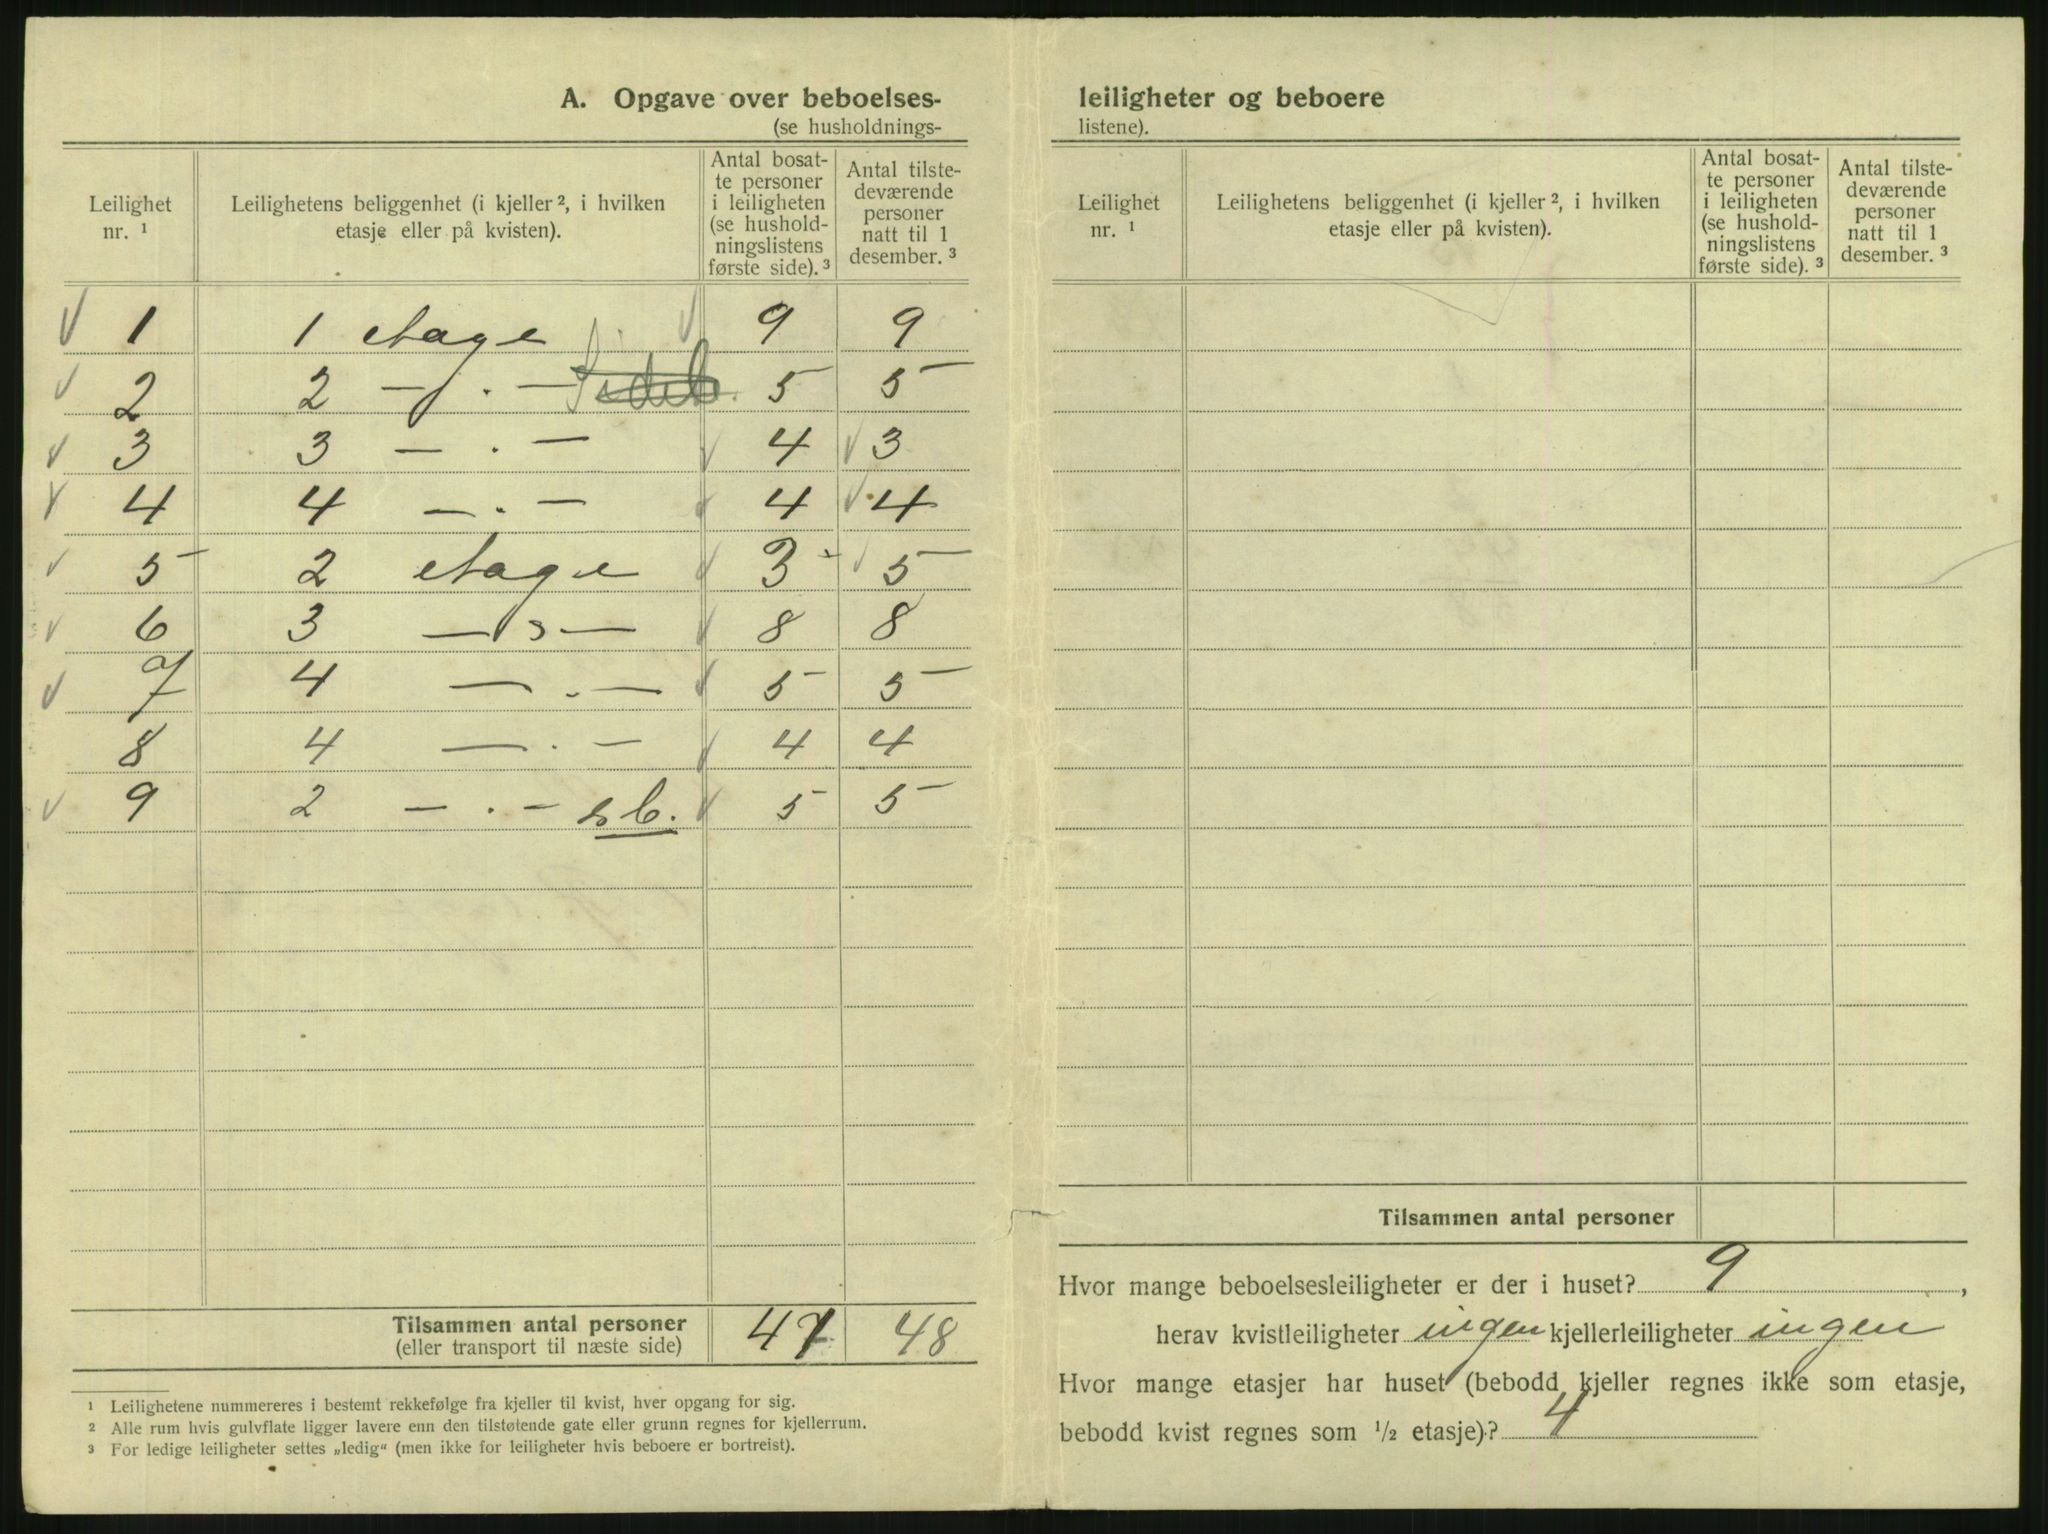 A. Opgave over beboelses-
(se husholdnings-
Leilighet nr. ¹ | Leilighetens beliggenhet (i kjeller ², i hvilken etasje eller på kvisten). | Antal bosatte personer i leiligheten (se husholdningslistens første side). ³ | Antal tilstedeværende personer natt til 1 desember. ³
1 | 1 etage | 9 | 9
2 | 2 — . — Sideb. | 5 | 5
3 | 3 — . — | 4 | 3
4 | 4 — . — | 4 | 4
5 | 2 etage | 3 | 5
6 | 3 — " — | 8 | 8
7 | 4 — . — | 5 | 5
8 | 4 — . — | 4 | 4
9 | 2 — . — sb. | 5 | 5
Tilsammen antal personer | 47 | 48
(eller transport til næste side)
¹ Leilighetene nummereres i bestemt rekkefølge fra kjeller til kvist, hver opgang for sig.
² Alle rum hvis gulvflate ligger lavere enn den tilstøtende gate eller grunn regnes for kjellerrum.
³ For ledige leiligheter settes „ledig“ (men ikke for leiligheter hvis beboere er bortreist).
leiligheter og beboere
listene).
Leilighet nr. ¹ | Leilighetens beliggenhet (i kjeller ², i hvilken etasje eller på kvisten). | Antal bosatte personer i leiligheten (se husholdningslistens første side). ³ | Antal tilstedeværende personer natt til 1 desember. ³
Tilsammen antal personer
Hvor mange beboelsesleiligheter er der i huset? 9,
herav kvistleiligheter ingen kjellerleiligheter ingen
Hvor mange etasjer har huset (bebodd kjeller regnes ikke som etasje,
bebodd kvist regnes som ½ etasje)? 4